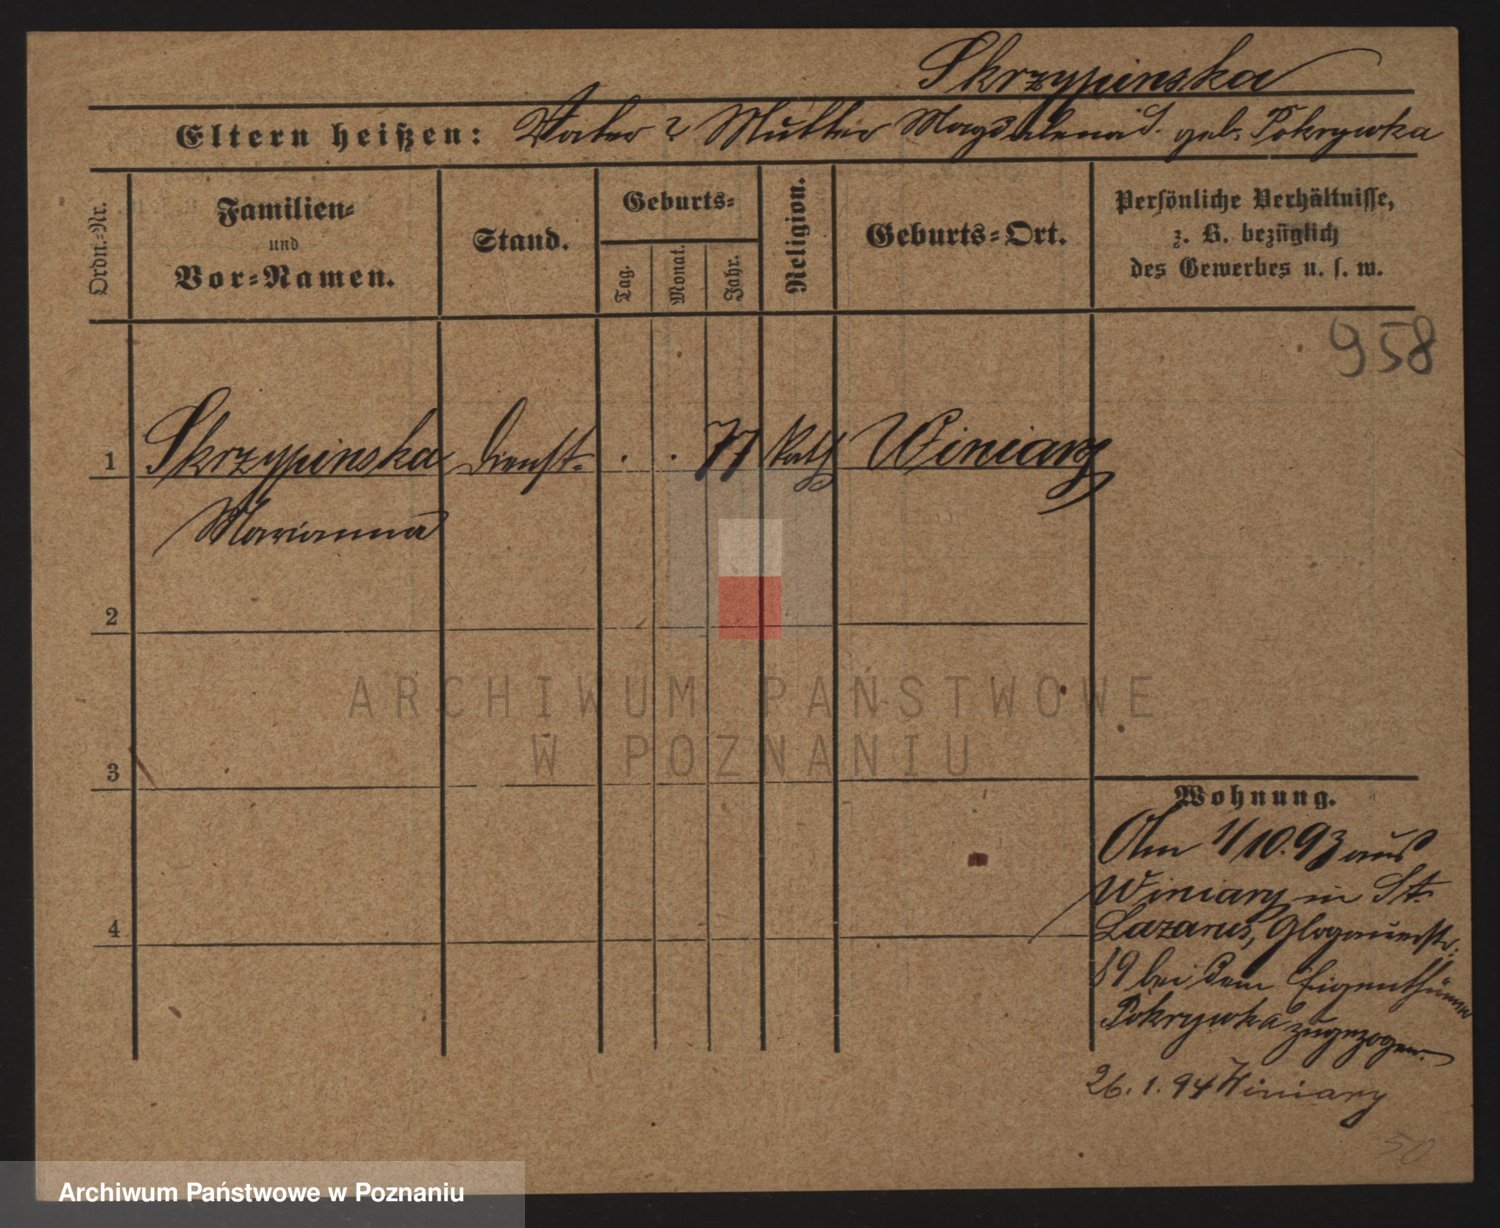 Skrzypinska
Eltern heißen: Vater ? Mutter Magdalena S. geb. Pokrywka
Ordn.-Nr. Familien- und Vor-Namen. Stand. Geburts- Tag. Monat. Jahr. Religion. Geburts-Ort. Persönliche Verhältnisse, z. B. bezüglich des Gewerbes u. s. w.
958
1 Skrzypinska Dienst. . . 77 Kath Winiary
Marianna
2
ARCHIWUM PAŃSTWOWE
W POZNANIU
3
Wohnung.
Am 1/10.93 aus
Winiary in St.
Lazarus, Glogauerstr.
89 bei dem Eigenthümer
Pokrywka zugezogen.
4
26.1.94 Winiary
50
Archiwum Państwowe w Poznaniu